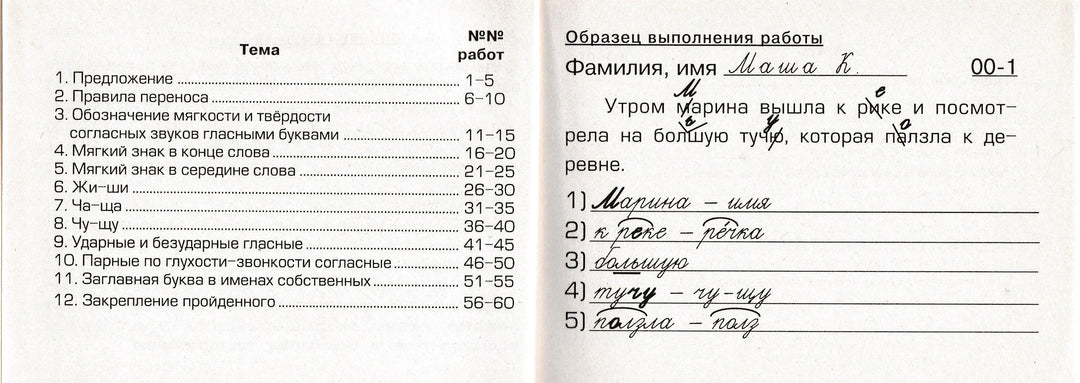 Тема
№№
работ
1. Предложение 1–5
2. Правила переноса 6–10
3. Обозначение мягкости и твёрдости
согласных звуков гласными буквами 11–15
4. Мягкий знак в конце слова 16–20
5. Мягкий знак в середине слова 21–25
6. Жи–ши 26–30
7. Ча–ща 31–35
8. Чу–щу 36–40
9. Ударные и безударные гласные 41–45
10. Парные по глухости–звонкости согласные 46–50
11. Заглавная буква в именах собственных 51–55
12. Закрепление пройденного 56–60
Образец выполнения работы
Фамилия, имя Маша К. 00-1
М е
Утром марина вышла к рике и посмот–
ь у о
рела на болшую тучю, которая палзла к де–
ревне.
1) Марина – имя
2) к реке – рéчка
3) большую
4) тучу – чу-щу
5) ползла – полз